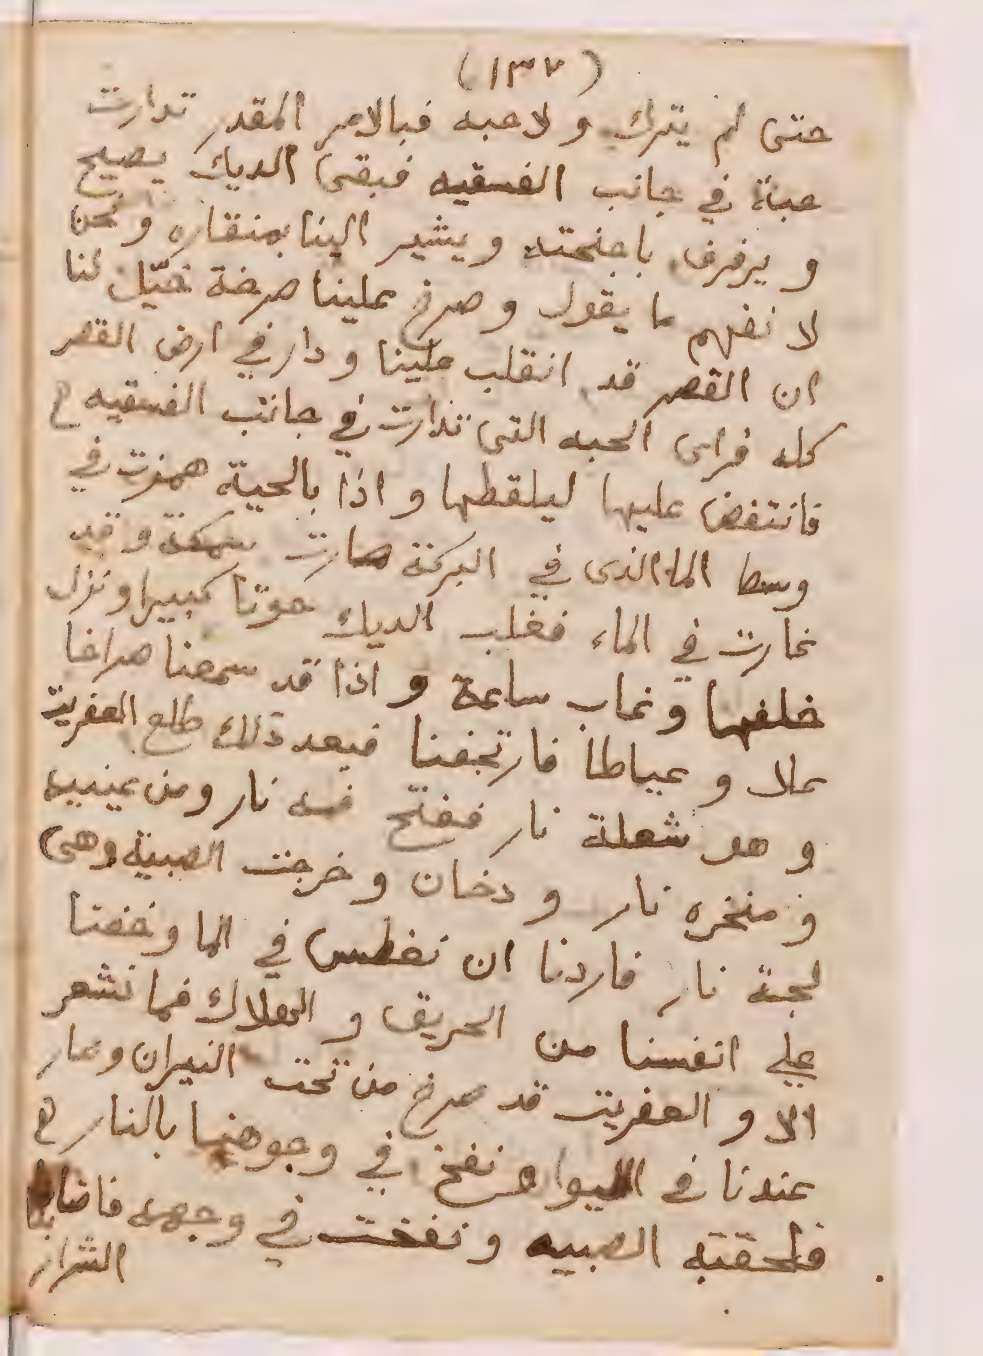 (١٣٧)
حتى لم يترك ولا حبه فبالامر المقدر تدارت
حبة في جانب الفسقيه فبقى الديك يصيح
و يرفرف باجنحته و يشير الينا بمنقاره و نحن
لا نفهم ما يقول و صرخ علينا صرخة تخيّل لنا
ان القصر قد انقلب علينا و دار في ارض القصر
كله فراى الحبه التى تدارت في جانب الفسقيه
فانتفض عليها ليلقطها و اذا بالحية في
وسط الما الذى في البركة صارت سمكة و قد
غارت في الماء فغلب الديك حوتا كبيرا و نزل
خلفها و غاب ساعة و اذا قد سمعنا صراخا
علا و عياطا فارتجفنا فبعد ذلك طلع العفريت
و هو شعلة نار ففتح فمه نار و من عينيه
و منخره نار و دخان و خرجت الصبية وهى
لجة نار فاردنا ان نغطس في الما و خفنا
علي انفسنا من الحريق و الهلاك فما نشعر
الا و العفريت قد صرخ من تحت النيران و صار
عندنا في الليوا و نفخ في وجوهنا بالنار
فلحقته الصبيه و نفخت في وجهه فاصابنا
الشرار